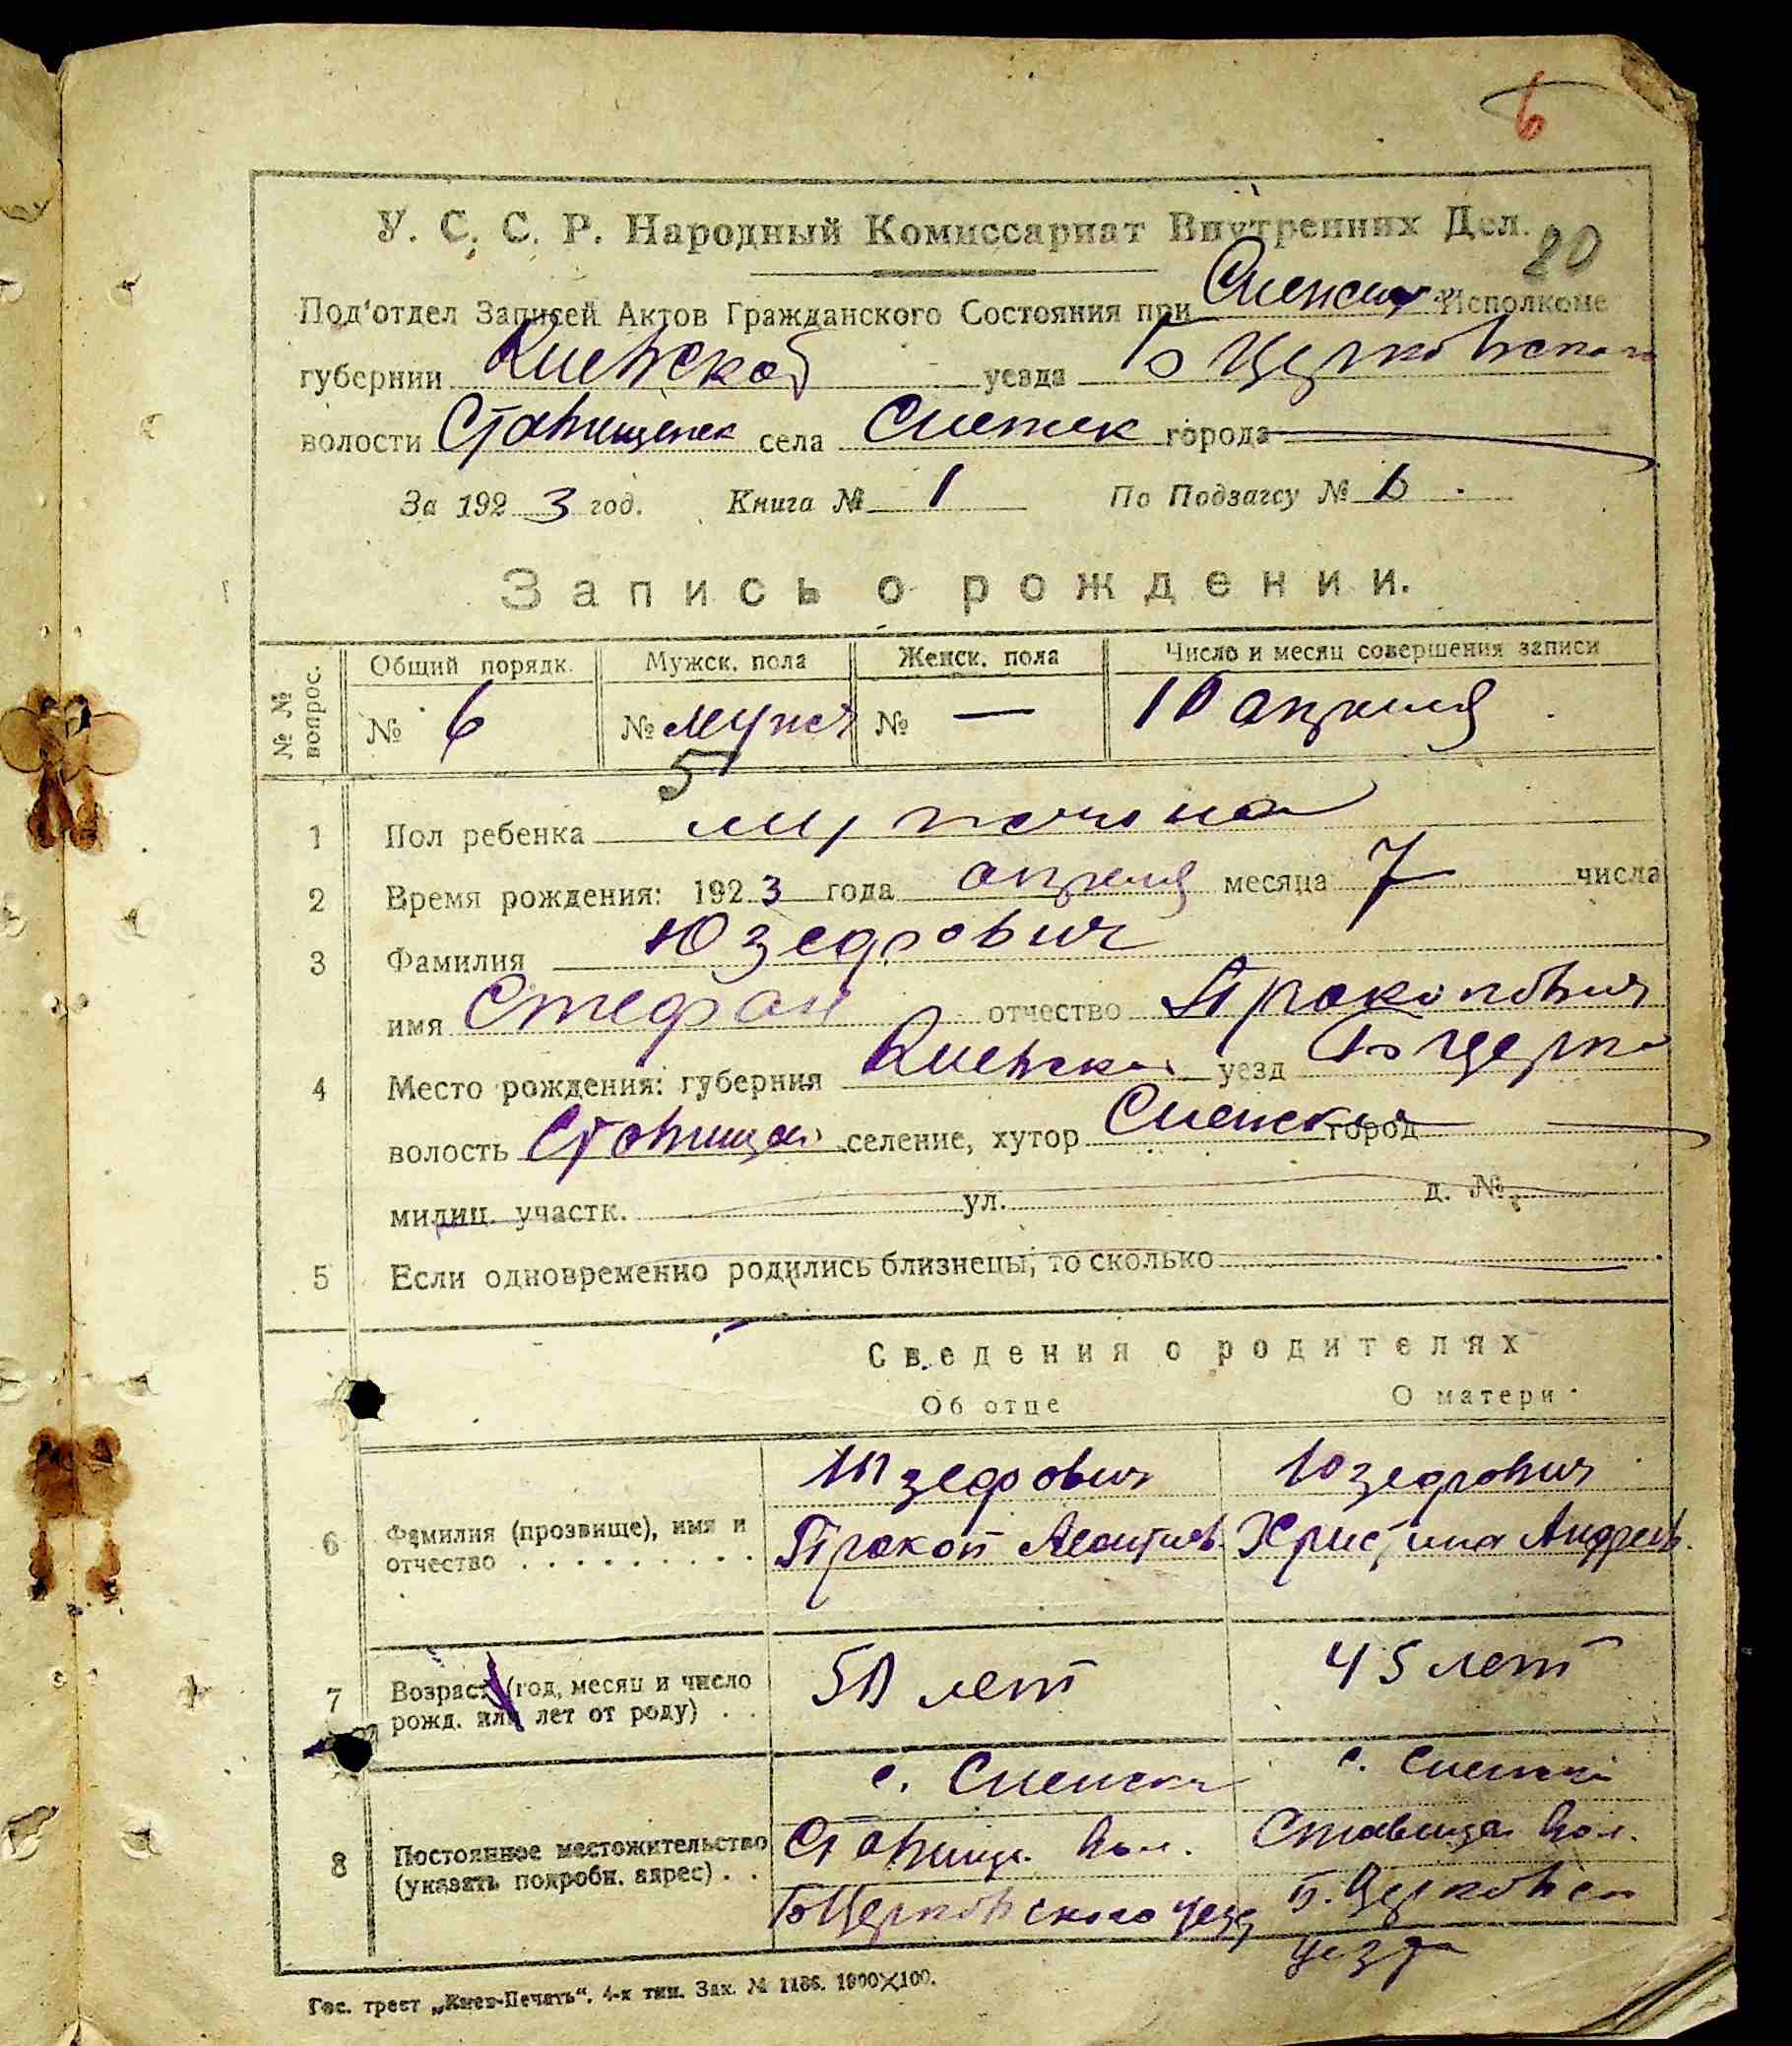 6
У. С. С. Р. Народный Комиссариат Внутренних Дел.
20
Под'отдел Записей Актов Гражданского Состояния при Исполкоме
губернии Киевской уезда Б Церковского
волости села города
За 192 3 год. Книга № 1 По Подзагсу № 6
Запись о рождении.
№№ вопрос. Общий порядк. Мужск. пола Женск. пола Число и месяц совершения записи
№ 6 № мужск № — 10 апреля
5
1 Пол ребенка мужчина
2 Время рождения: 192 3 года апреля месяца 7 числа
3 Фамилия Юзефович
имя Стефан отчество Прокопович
4 Место рождения: губерния Киевская уезд Б Церко
волость селение, хутор город
милиц. участк. ул. д. №
5 Если одновременно родились близнецы, то сколько
Сведения о родителях
Об отце О матери
Юзефович Юзефович
6 Фамилия (прозвище), имя и отчество . . . . . . . . . Прокоп Леонтиев. Христина Андреев.
7 Возраст (год, месяц и число рожд. или лет от роду) . . 50 лет 45 лет
с. с.
8 Постоянное местожительство (указать подробн. адрес) . . Ставищ. вол. Ставищан вол.
БЦерковского уезд Б. Церковск
уезда
Гос. трест „Киев-Печать“. 4-я тип. Зак. № 1186. 1000×100.